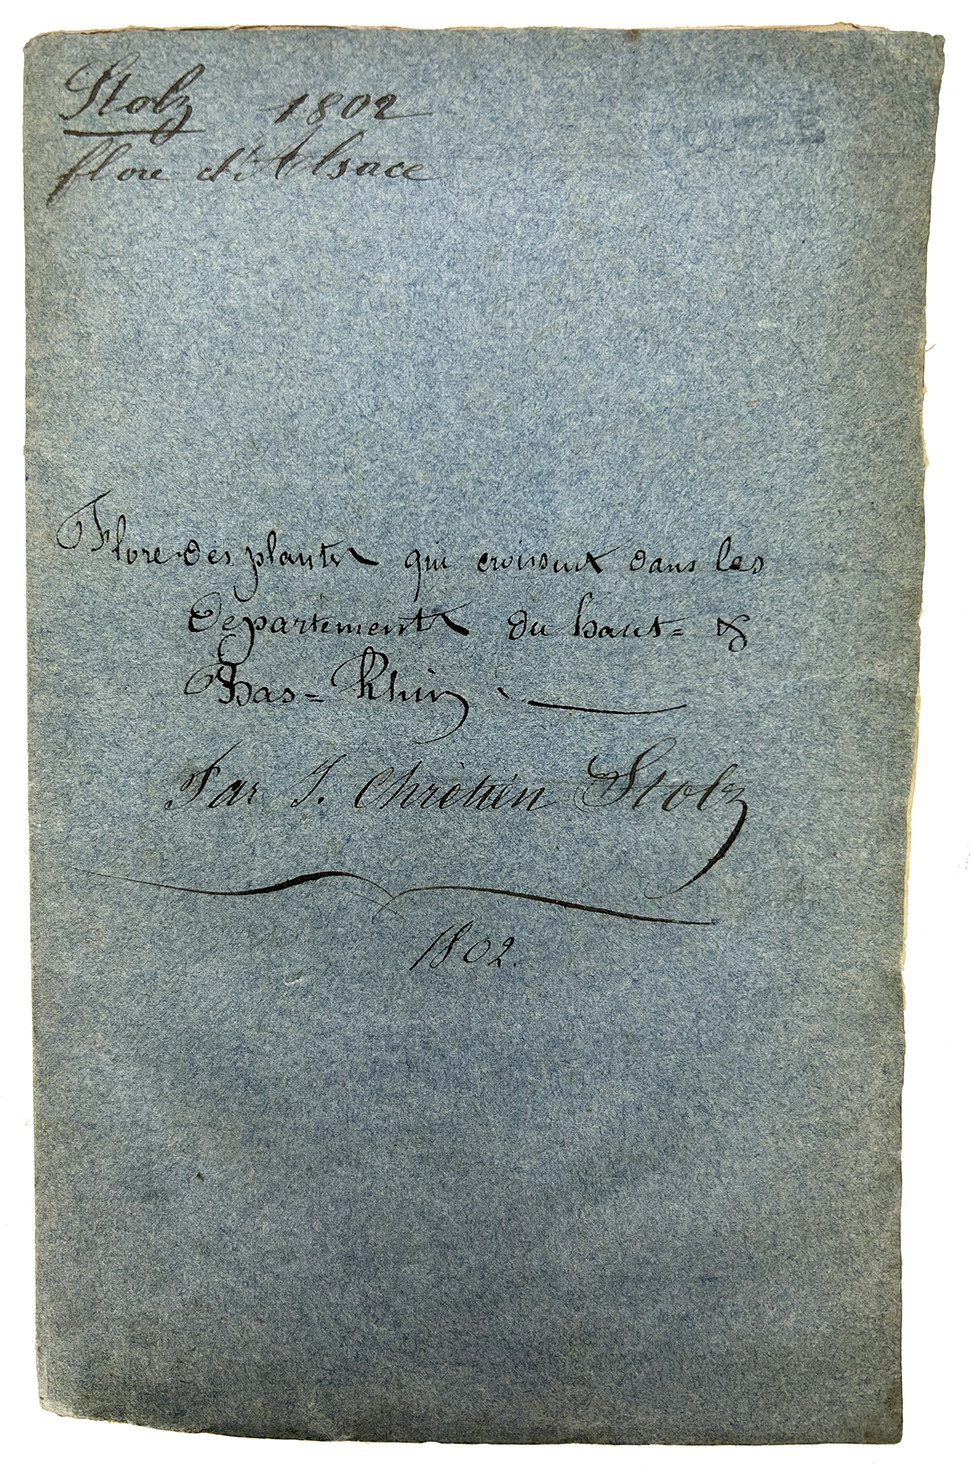 Stolz 1802
flore d'Alsace
Flore des plantes qui croissent dans les
Departements du haut= &
Bas= Rhin.
Par J. Chrétien Stolz
1802.